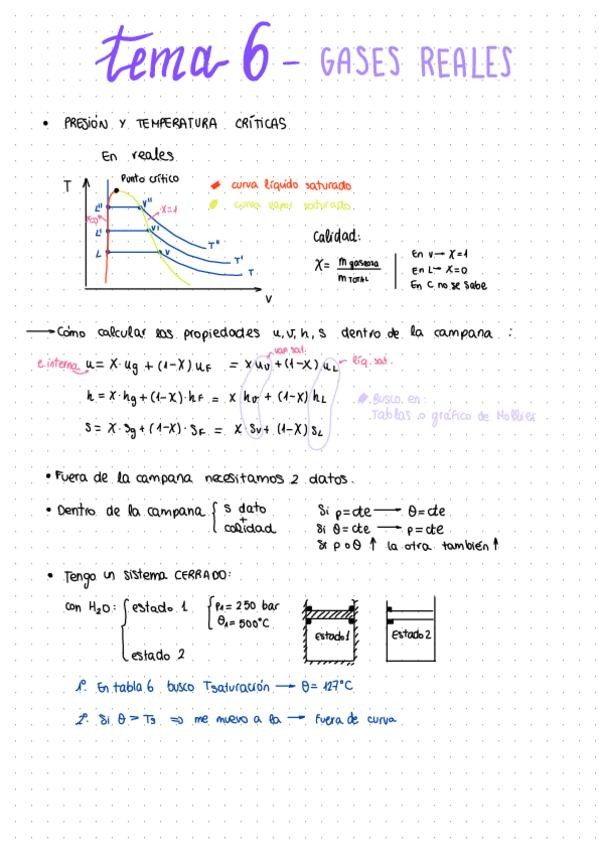 tema 6 - GASES REALES
• PRESIÓN Y TEMPERATURA CRÍTICAS
En reales
T
Punto crítico
curva líquido saturado
curva vapor saturado
L" V" X=1
L' V'
L V
T"
T'
T
V
Calidad:
X = m gaseosa / m TOTAL
En V → X=1
En L → X=0
En C no se sabe
→ Cómo calcular las propiedades u, v, h, s dentro de la campana :
e.interna u = X · ug + (1-X) uF = X uv + (1-X) uL
vap sat.
líq. sat.
h = X · hg + (1-X) · hF = X hv + (1-X) hL
s = X · sg + (1-X) · sF = X sv + (1-X) sL
Busco en:
Tablas o gráfico de Mollier
• Fuera de la campana necesitamos 2 datos.
• Dentro de la campana { s dato + calidad
Si p=cte → θ=cte
Si θ=cte → p=cte
Si p o θ ↑ la otra también ↑
• Tengo un sistema CERRADO:
con H2O: { estado 1 { p1 = 250 bar
θ1 = 500°C
estado 2
estado 1
estado 2
1º. En tabla 6 busco Tsaturación → θ = 127°C
2º. Si θ > Ts ⇒ me muevo a la → Fuera de curva